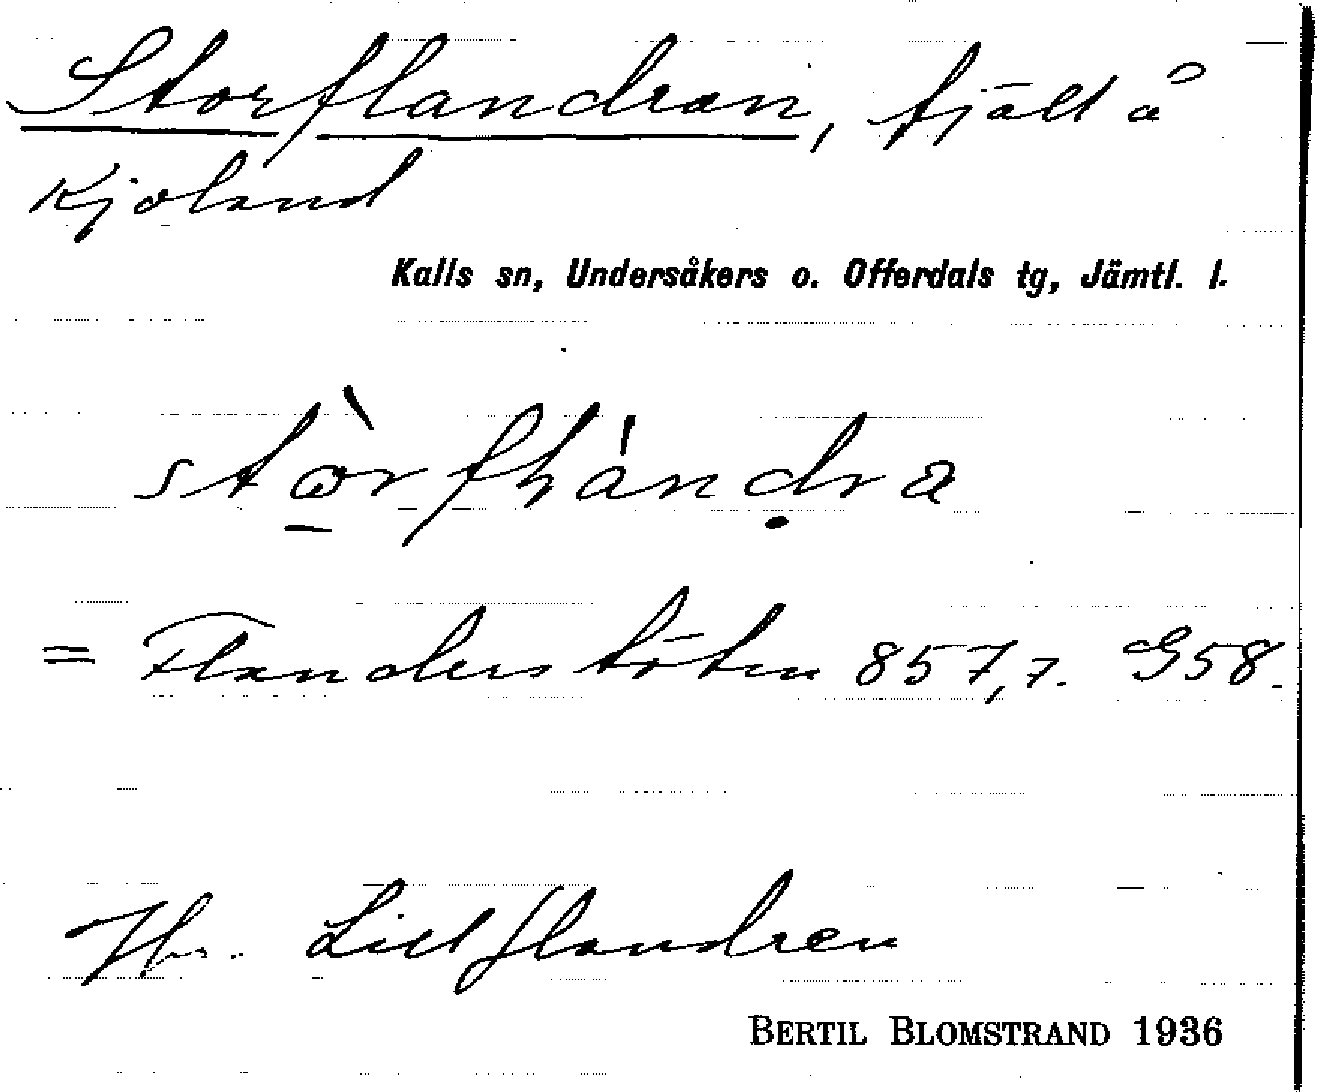 Storflandran, fjäll å
Kjoland
Kalls sn, Undersåkers o. Offerdals tg, Jämtl. l.
= Flanderstöten 857,7. G58.
Jfr. Lillflandren
BERTIL BLOMSTRAND 1936